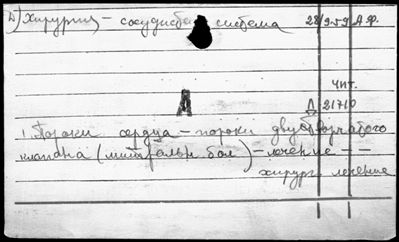 Д) Хирургия – сосудистая система 28/9-59 А.Ф.
чит.
Д
Д 21710
1. Пороки сердца – пороки двустворчатого
клапана (митральн. бол) – лечение – –
хирург. лечение